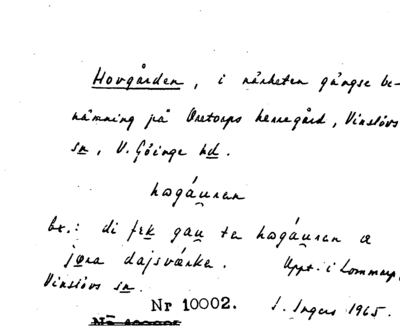 Hovgården, i närheten gängse be-
nämning på Oretorps herregård, Vinslövs
sn, V. Göinge hd.
hågáu̯ran
Ex.: di frk gau̯ ta hågáu̯ran å
jøra dajsvärke. Uppt. i Lommarp,
Vinslövs sn.
Nr 10002. S. Ingers 1965.